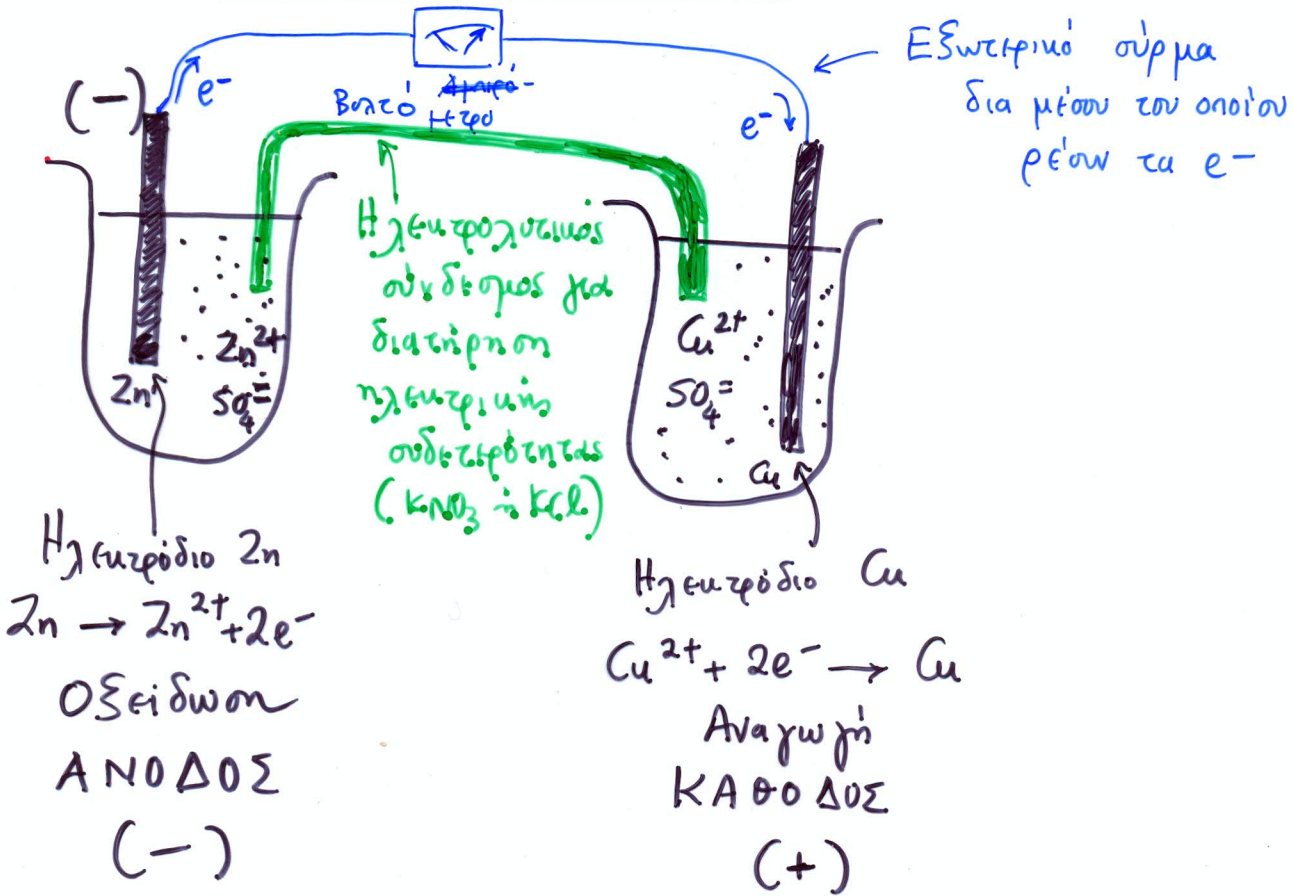 Εξωτερικό σύρμα
δια μέσου του οποίου
ρέουν τα e-
(-)
e-
Βολτό
μετρο
e-
Ηλεκτρολυτικός
σύνδεσμος για
διατήρηση
ηλεκτρικής
ουδετερότητας
(KNO₃ ή KCl)
Zn
Zn²⁺
SO₄⁼
Cu²⁺
SO₄⁼
Cu
Ηλεκτρόδιο Zn
Zn → Zn²⁺+2e⁻
Οξείδωση
ΑΝΟΔΟΣ
(-)
Ηλεκτρόδιο Cu
Cu²⁺+ 2e⁻ → Cu
Αναγωγή
ΚΑΘΟΔΟΣ
(+)